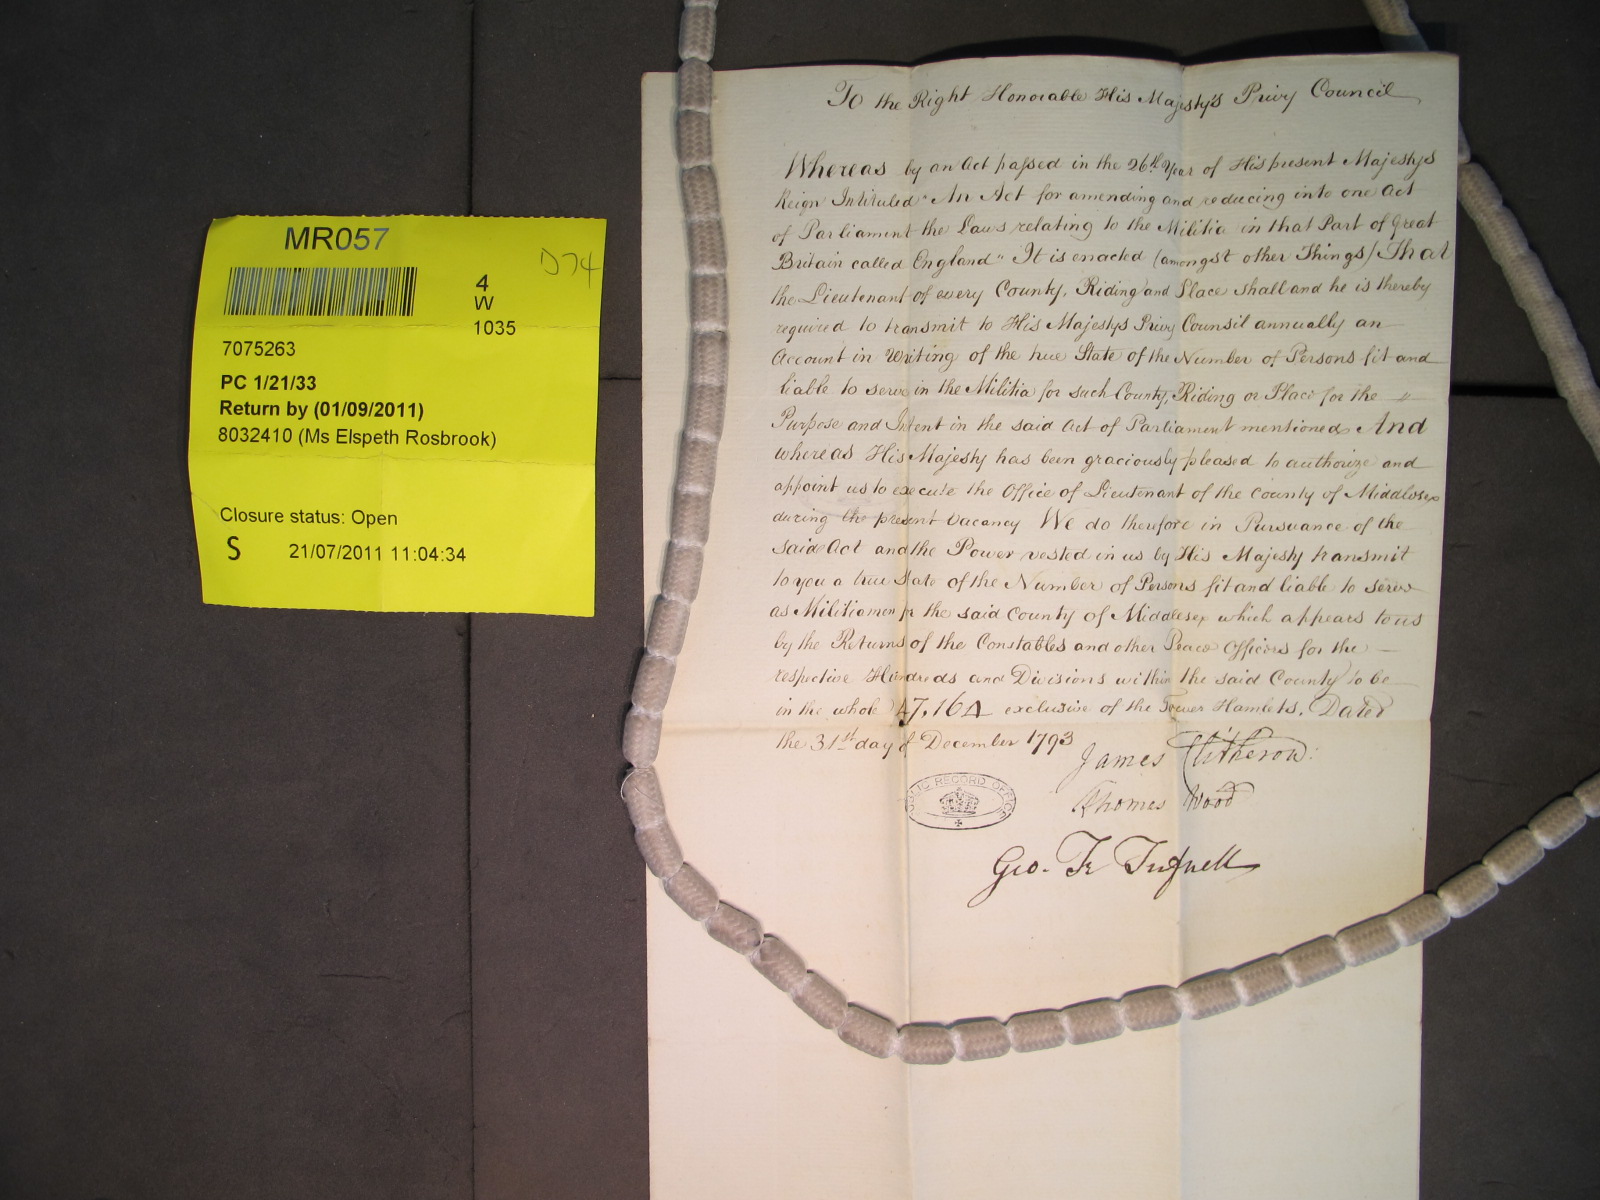 MR057
D74
4
W
1035
7075263
PC 1/21/33
Return by (01/09/2011)
8032410 (Ms Elspeth Rosbrook)
Closure status: Open
S 21/07/2011 11:04:34
To the Right Honorable His Majesty's Privy Council
Whereas by an Act passed in the 26th Year of His present Majestys
Reign Intituled "An Act for amending and reducing into one Act
of Parliament the Laws relating to the Militia in that Part of Great
Britain called England" It is enacted (amongst other Things) That
the Lieutenant of every County, Riding and Place shall and he is thereby
required to transmit to His Majestys Privy Counsil annually an
Account in Writing of the true State of the Number of Persons fit and
liable to serve in the Militia for such County, Riding or Place for the "
Purpose and Intent in the said Act of Parliament mentioned And
whereas His Majesty has been graciously pleased to authorize and
appoint us to execute the Office of Lieutenant of the County of Middlesex
during the present Vacancy We do therefore in Pursuance of the
said Act and the Power vested in us by His Majesty transmit
to you a true State of the Number of Persons fit and liable to serve
as Militiamen for the said County of Middlesex which appears to us
by the Returns of the Constables and other Peace Officers for the —
respective Hundreds and Divisions within the said County to be
in the whole 47,164 exclusive of the Tower Hamlets. Dated
the 31st day of December 1793
James Clitherow
Thomas Wood
PUBLIC RECORD OFFICE
Geo. Fr Tufnell